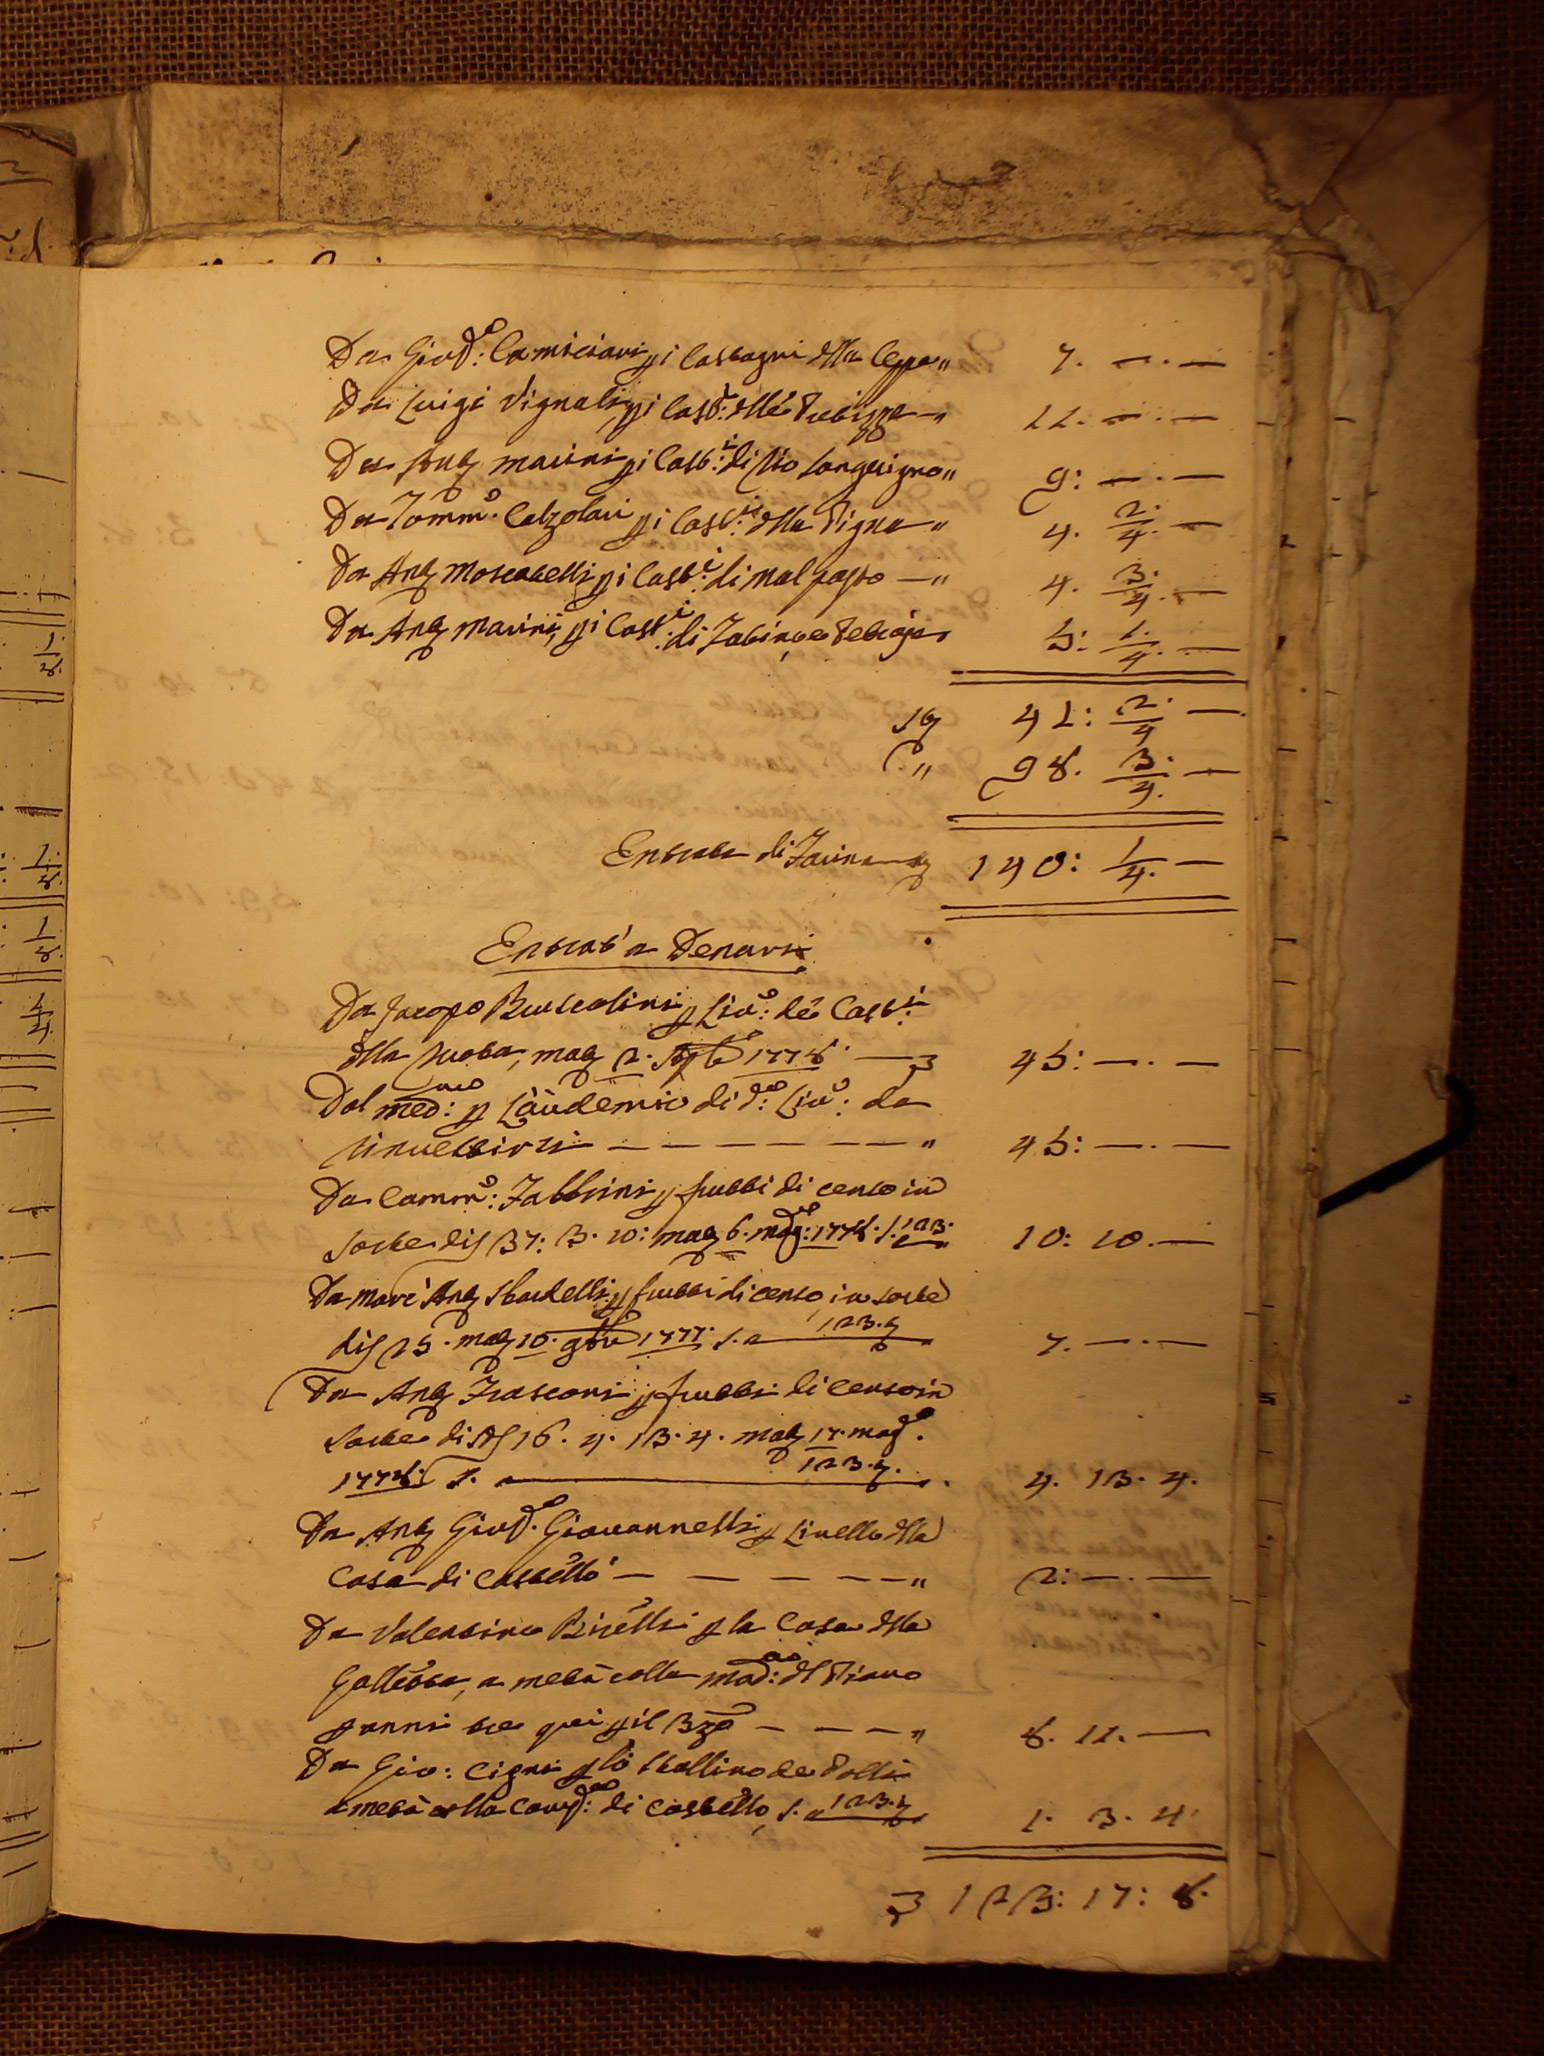 Da Giuse: Camiciani p i Castagni della Ceppa " 7. — . —
Da Luigi Vignali p i Casti: delle " 11. — . —
Da Ang Marini p i Casti: di Rio Sanguigno " 9: — . —
Da Tommo. Calzolari p i Casti: della Vigna " 4. 2/4. —
Da Ang Moscatelli p i Casti: di Malpasso — " 4. 3/4. —
Da Ang Marini, p i Casti: di 5: 1/4. —
41: 2/4 —
" 98. 3/4. —
Entrata di Farina 140: 1/4. —
Entrata a Denari
Da Jacopo Bruscolini p Livo: de Casti:
della Ruota, mag 12. 1778. — 45: — . —
Dal medmo: p Laudemio di do: Livo: da
rinvestirsi — — — — — — — " 45: — . —
Da Cammo: Fabbrini p frutti di censo in
sorte di 37: 3. 10: mag 6. maggo: 1778. 123. 10: 10. —
Da Marc' Ang Sbardelli p frutti di censo, in sorte
di 25. mag 10. 9bre 1777. 123. 7. — . —
Da Ang Frasconi p frutti di censo in
sorte di 16. 4. 13. 4. mag 17. mago.
1778: 123. 4. 13. 4.
Da Ang Giuse. Giovannelli p Livello della
Casa di Castello — — — — — " 2: — . —
Da Valentino Bicelli p la Casa della
Gallozza, a metà colla mado: del Piano
p anni tre qui p il 3zo — — — " 8. 11. —
Da Gio: Cigni p lo Stallino de Polli
a metà colla Compa: di Castello, 123. 1. 3. 4.
123: 17: 8.